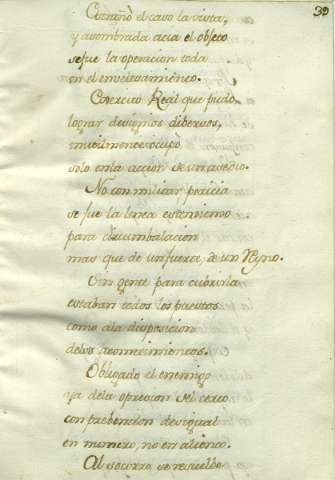 39
Estrañò el caso la vista,
y asombrada acia el objeto
se fue la operacion toda
en el envelesamiento.
Exercito Real que pudo
lograr designios diversos,
inutilmente ocupò
solo en la accion de un asedio.
No con militar pericia
se fue la linea estendiendo
para circumbalacion
mas que de un fuerte, de un Reyno.
Sin gente para cubrirla
estaban todos los puestos
como a la disposicion
delos acontecimientos.
Obligado el enemigo
ya dela opresion del cerco
con prebencion desigual
en numero, no en aliento.
Al socorro se resuelbe